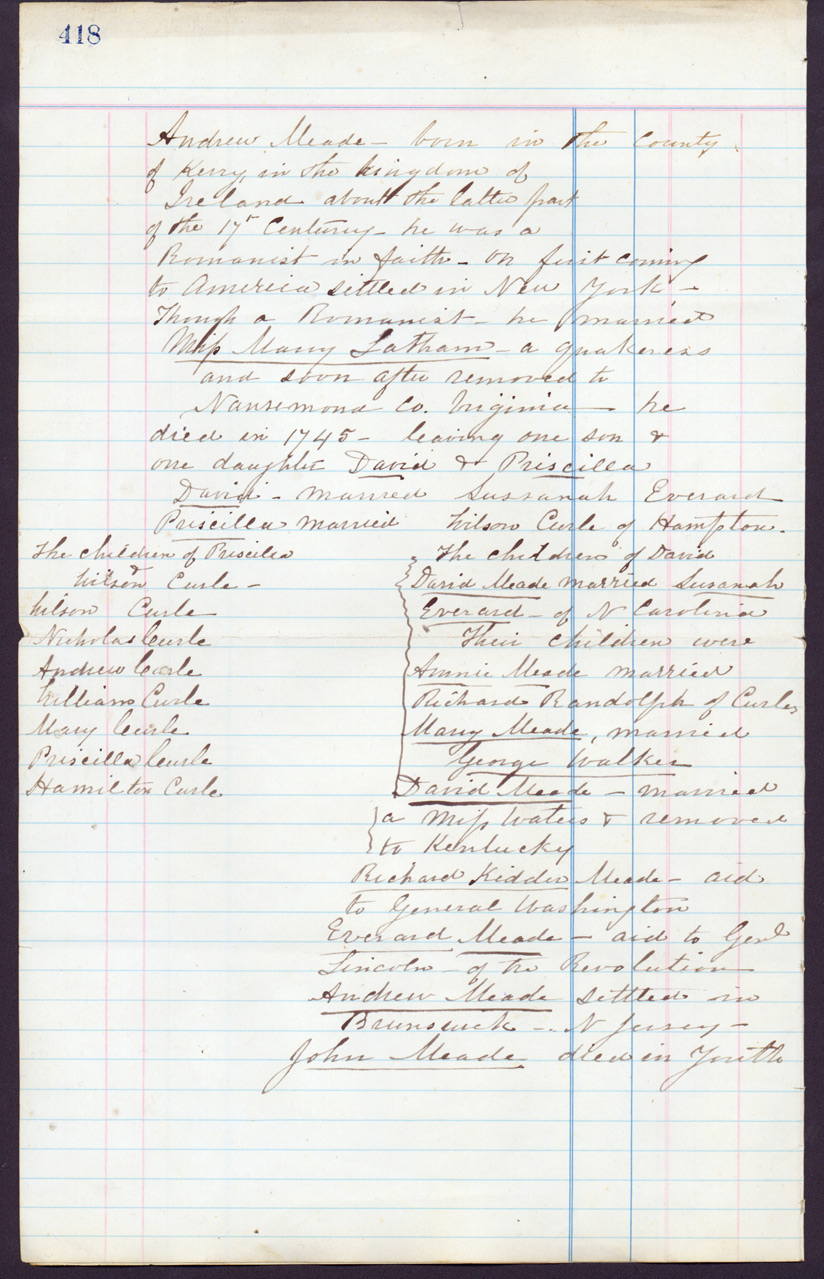 418
Andrew Meade - born in the County
of Kerry in the kingdom of
Ireland about the latter part
of the 17th Century - he was a
Romanist in faith - on first coming
to America settled in New York -
Though a Romanist - he married
Miss Mary Latham - a quakeress
and soon after removed to
Nansemond Co. Virginia - he
died in 1745 - leaving one son &
one daughter David & Priscilla
David - married Sussanah Everard
Priscilla married Wilson Curle of Hampton.
The children of Priscilla
& Wilson Curle -
Wilson Curle
Nicholas Curle
Andrew Curle
William Curle
Mary Curle
Priscilla Curle
Hamilton Curle
The children of David
David Meade married Susanah
Everard - of N Carolina
Their children were
Annie Meade married
Richard Randolph of Curles
Mary Meade, married
George Walker
David Meade - married
a Miss Waters & removed
to Kentucky
Richard Kidder Meade - aid
to General Washington
Everard Meade - aid to Genl
Lincoln - of the Revolution
Andrew Meade settled in
Brunswick - N Jersey -
John Meade died in Youth